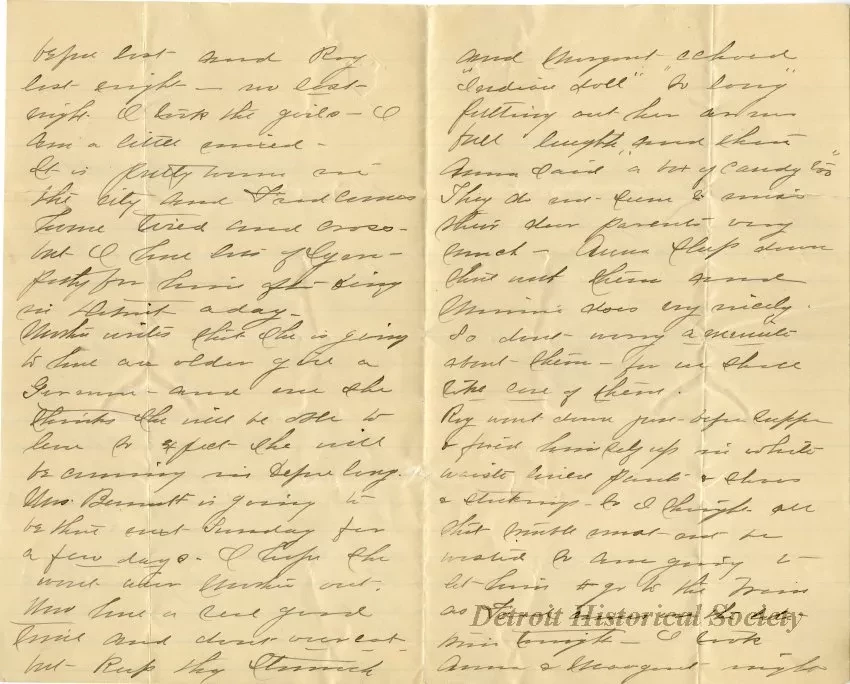 before last and Roy
last night — no last
night I took the girls — I
am a little mixed —
It is pretty warm in
the city and Fred comes
home tired and cross —
but I have lots of sym-
pathy for him
in Detroit a day —
writes that she is going
to have an older girl a
German — and one she
thinks she will be able to
love so expect she will
be coming in before long.
Mrs. Bennett is going to
be there next Sunday for
a few days. I hope she
wont wear out.
Now have a real good
time and dont overeat
but Keep thy Stomach
and Margaret echoed
"Indian doll" "So long"
putting out her arms
full length, and then
Anna said "a box of candy too"
They do not seem to miss
their dear parents very
much — Anna sleeps down
there with them and
Minnie does very nicely.
So dont worry a minute
about them — for we shall
take care of them.
Roy went down just before supper
& fixed himself up in white
waist, linen pants & shoes
& stockings — so I thought all
that trouble must not be
wasted so am going to
let him go to the Train
as
tonight — I took
Anna & Margaret night
Detroit Historical Society